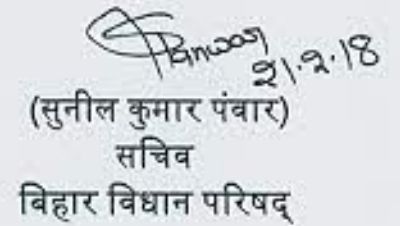 Panwar
21.2.18
(सुनील कुमार पंवार)
सचिव
बिहार विधान परिषद्